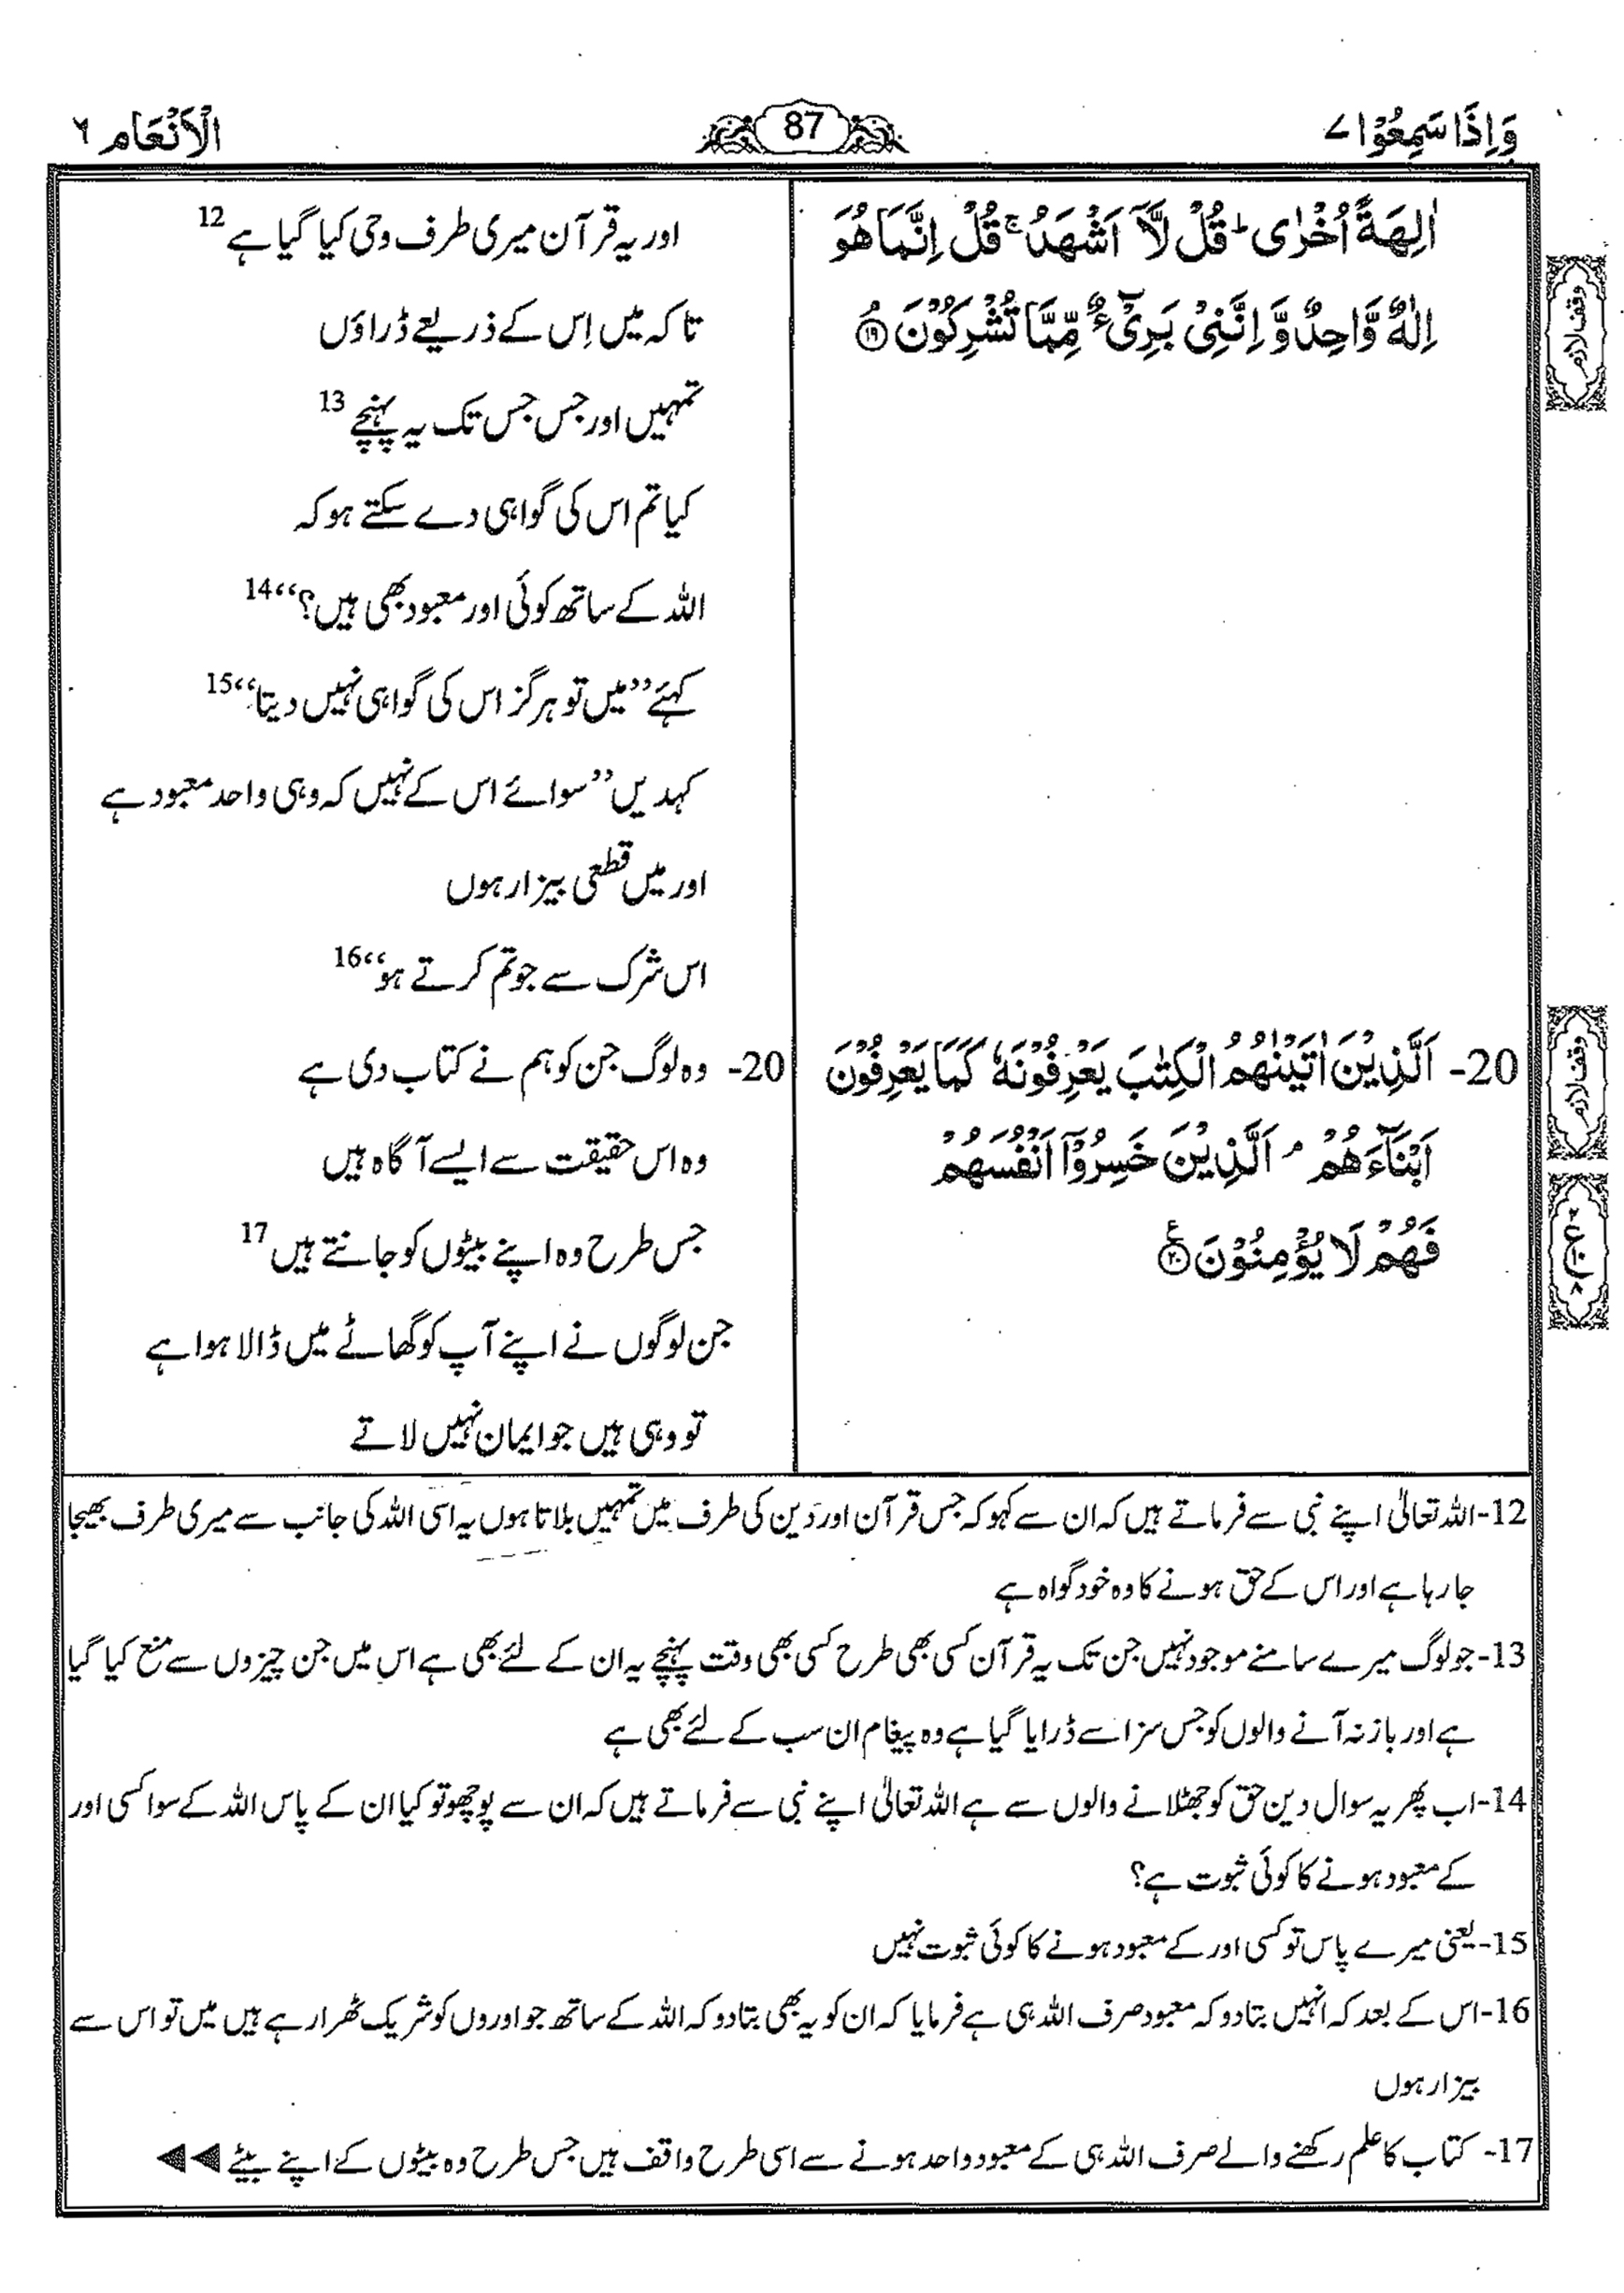 وَاِذَا سَمِعُوْا ۷
87
الْاَنْعَام ۶
اٰلِهَةً اُخْرٰى ؕ قُلْ لَّاۤ اَشْهَدُ ۚ قُلْ اِنَّمَا هُوَ
اِلٰهٌ وَّاحِدٌ وَّ اِنَّنِیْ بَرِیْٓءٌ مِّمَّا تُشْرِكُوْنَ ۘ ﴿۱۹﴾
20- اَلَّذِیْنَ اٰتَیْنٰهُمُ الْكِتٰبَ یَعْرِفُوْنَهٗ كَمَا یَعْرِفُوْنَ
اَبْنَآءَهُمْ ۘ اَلَّذِیْنَ خَسِرُوْۤا اَنْفُسَهُمْ
فَهُمْ لَا یُؤْمِنُوْنَ ﴿۲۰﴾ ع
وقف لازم
وقف لازم
اور یہ قرآن میری طرف وحی کیا گیا ہے 12
تاکہ میں اِس کے ذریعے ڈراؤں
تمہیں اور جس جس تک یہ پہنچے 13
کیا تم اس کی گواہی دے سکتے ہو کہ
اللہ کے ساتھ کوئی اور معبود بھی ہیں؟‘‘ 14
کہئے ’’میں تو ہرگز اس کی گواہی نہیں دیتا‘‘ 15
کہدیں ’’سوائے اس کے نہیں کہ وہی واحد معبود ہے
اور میں قطعی بیزار ہوں
اس شرک سے جو تم کرتے ہو‘‘ 16
20- وہ لوگ جن کو ہم نے کتاب دی ہے
وہ اس حقیقت سے ایسے آگاہ ہیں
جس طرح وہ اپنے بیٹوں کو جانتے ہیں 17
جن لوگوں نے اپنے آپ کو گھاٹے میں ڈالا ہوا ہے
تو وہی ہیں جو ایمان نہیں لاتے
12-اللہ تعالیٰ اپنے نبی سے فرماتے ہیں کہ ان سے کہو کہ جس قرآن اور دین کی طرف میں تمہیں بلاتا ہوں یہ اسی اللہ کی جانب سے میری طرف بھیجا
جا رہا ہے اور اس کے حق ہونے کا وہ خود گواہ ہے
13-جو لوگ میرے سامنے موجود نہیں جن تک یہ قرآن کسی بھی طرح کسی بھی وقت پہنچے یہ ان کے لئے بھی ہے اس میں جن چیزوں سے منع کیا گیا
ہے اور باز نہ آنے والوں کو جس سزا سے ڈرایا گیا ہے وہ پیغام ان سب کے لئے بھی ہے
14-اب پھر یہ سوال دین حق کو جھٹلانے والوں سے ہے اللہ تعالیٰ اپنے نبی سے فرماتے ہیں کہ ان سے پوچھو تو کیا ان کے پاس اللہ کے سوا کسی اور
کے معبود ہونے کا کوئی ثبوت ہے؟
15-یعنی میرے پاس تو کسی اور کے معبود ہونے کا کوئی ثبوت نہیں
16-اس کے بعد کہ انہیں بتا دو کہ معبود صرف اللہ ہی ہے فرمایا کہ ان کو یہ بھی بتا دو کہ اللہ کے ساتھ جو اوروں کو شریک ٹھرا رہے ہیں میں تو اس سے
بیزار ہوں
17- کتاب کا علم رکھنے والے صرف اللہ ہی کے معبود واحد ہونے سے اسی طرح واقف ہیں جس طرح وہ بیٹوں کے اپنے بیٹے ◀◀